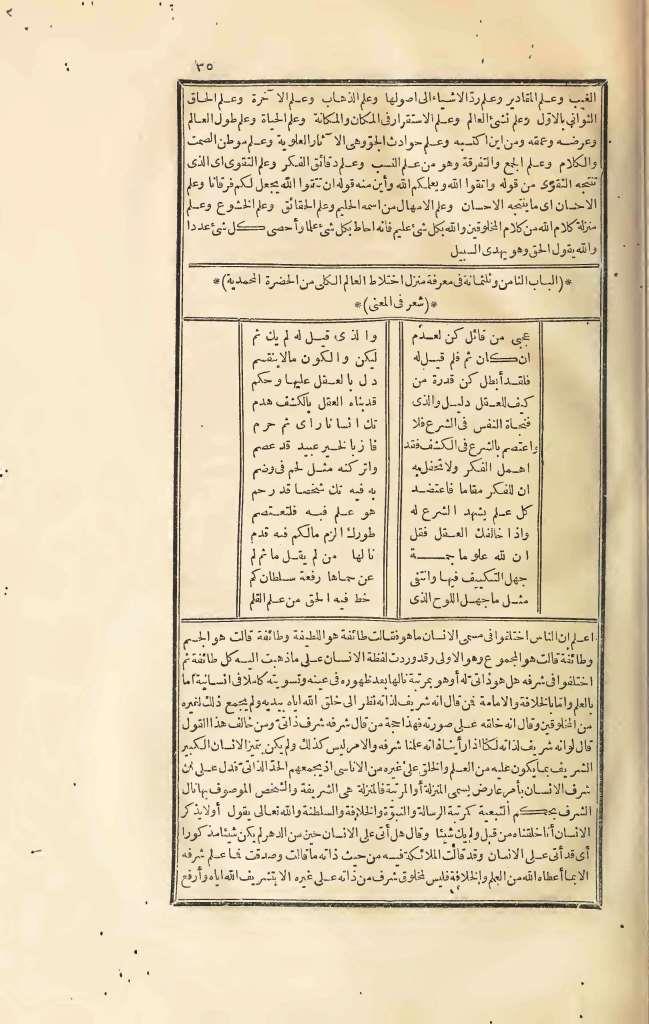 ٣٥
الغيب وعلم المقادير وعلم ردّ الاشياء الى اصولها وعلم الذهاب وعلم الآخرة وعلم الحاق
الثوانى بالاوّل وعلم نشئ العالم وعلم الاستقرار فى المكان والمكانة وعلم الحياة وعلم طول العالم
وعرضه وعمقه ومن اين اكتسبه وعلم حوادث الجوّ وهى الآثار العلوية وعلم موطن الصمت
والكلام وعلم الجمع والتفرقة وهو من علم النسب وعلم دقائق الفكر وعلم التقوى اى الذى
تنتجه التقوى من قوله واتقوا الله ويعلمكم الله وأين منه قوله ان تتقوا الله يجعل لكم فرقانا وعلم
الاحسان اى ما ينتجه الاحسان وعلم الامهال من اسمه الحليم وعلم الحقائق وعلم الخشوع وعلم
منزلة كلام الله من كلام المخلوقين والله بكل شئ عليم فانه احاط بكل شئ علما وأحصى كل شئ عددا
والله يقول الحق وهو يهدى السبيل
*(الباب الثامن وثلثمائة فى معرفة منزل اختلاط العالم الكلى من الحضرة المحمدية)*
*(شعر فى المعنى)*
عجبى من قائل كن لعدم والذى قيل له لم يك ثم
ان كان ثم فلم قيل له ليكن والكون ما لا ينقسم
فلقد أبطل كن قدرة من دل بالعقل عليها وحكم
كيف للعقل دليل والذى قد بناه العقل بالكشف هدم
فنجاة النفس فى الشرع فلا تك انسانا رأى ثم حرم
واعتصم بالشرع فى الكشف فقد فاز بالخير عبيد قد عصم
اهمل الفكر ولا تحفل به واتركنه مثل لحم فى وضم
ان للفكر مقاما فاعتضد به فيه تك شخصا قد رحم
كل علم يشهد الشرع له هو علم فبه فلتعتصم
واذا خالفك العقل فقل طورك الزم مالكم فيه قدم
ان لله علوما جمة نالها من لم يقل ما ثم لم
جهل التكييف فيها وانتفى عن حماها رفعة سلطان كم
مثل ما جهل اللوح الذى خط فيه الحق من علم القلم
اعلم ان الناس اختلفوا فى مسمى الانسان ما هو فقالت طائفة هو اللطيفة وطائفة قالت هو الجسم
وطائفة قالت هو المجموع وهو الاولى وقد وردت لفظة الانسان على ما ذهبت اليه كل طائفة ثم
اختلفوا فى شرفه هل هو ذاتى له أو هو بمرتبة نالها بعد ظهوره فى عينه وتسويته كاملا فى انسانيته اما
بالعلم واما بالخلافة والامامة فمن قال انه شريف لذاته نظر الى خلق الله اياه بيديه ولم يجمع ذلك لغيره
من المخلوقين وقال انه خلقه على صورته فهذا حجة من قال شرفه شرف ذاتى ومن خالف هذا القول
قال لو انه شريف لذاته لكنا اذا رأينا ذاته علمنا شرفه والامر ليس كذلك ولم يكن يتميز الانسان الكبير
الشريف بما يكون عليه من العلم والخلق على غيره من الاناسى اذ يجمعهم الحدّ الذاتى فدل على ان
شرف الانسان بأمر عارض يسمى المنزلة أو المرتبة فالمنزلة هى الشريفة والشخص الموصوف بها نال
الشرف بحكم التبعية كمرتبة الرسالة والنبوّة والخلافة والسلطنة والله تعالى يقول أولا يذكر
الانسان أنا خلقناه من قبل ولم يك شيئا وقال هل أتى على الانسان حين من الدهر لم يكن شيئا مذكورا
أى قد أتى على الانسان وقد قالت الملائكة فيه من حيث ذاته ما قالت وصدقت فما علم شرفه
الا بما أعطاه الله من العلم والخلافة فليس لمخلوق شرف من ذاته على غيره الا بتشريف الله اياه وأرفع